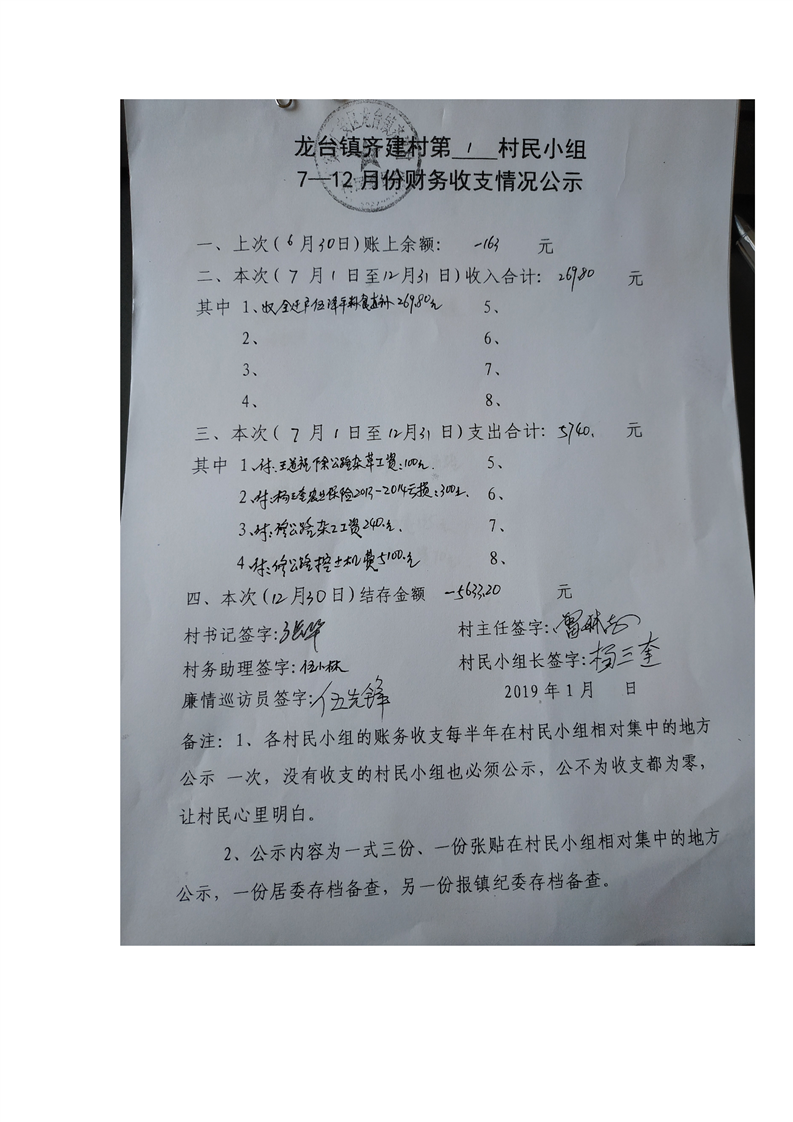 龙台镇齐建村第 1 村民小组
7—12月份财务收支情况公示
一、上次(6月30日)账上余额: -163 元
二、本次(7月1日至12月31日)收入合计: 269.80 元
其中 1、收 269.80元 5、
2、 6、
3、 7、
4、 8、
三、本次(7月1日至12月31日)支出合计: 5740. 元
其中 1、付:王 公路杂草工资:100元. 5、
2、付:杨三奎农业保险2013-2014亏损:300元. 6、
3、付:修公路杂工工资240元. 7、
4、付:修公路挖土机费5100元 8、
四、本次(12月30日)结存金额 -5633.20 元
村书记签字: 村主任签字:
村务助理签字:伍小林 村民小组长签字:杨三奎
廉情巡访员签字:伍先锋 2019年1月 日
备注:1、各村民小组的账务收支每半年在村民小组相对集中的地方
公示 一次,没有收支的村民小组也必须公示,公不为收支都为零,
让村民心里明白。
2、公示内容为一式三份、一份张贴在村民小组相对集中的地方
公示,一份居委存档备查,另一份报镇纪委存档备查。